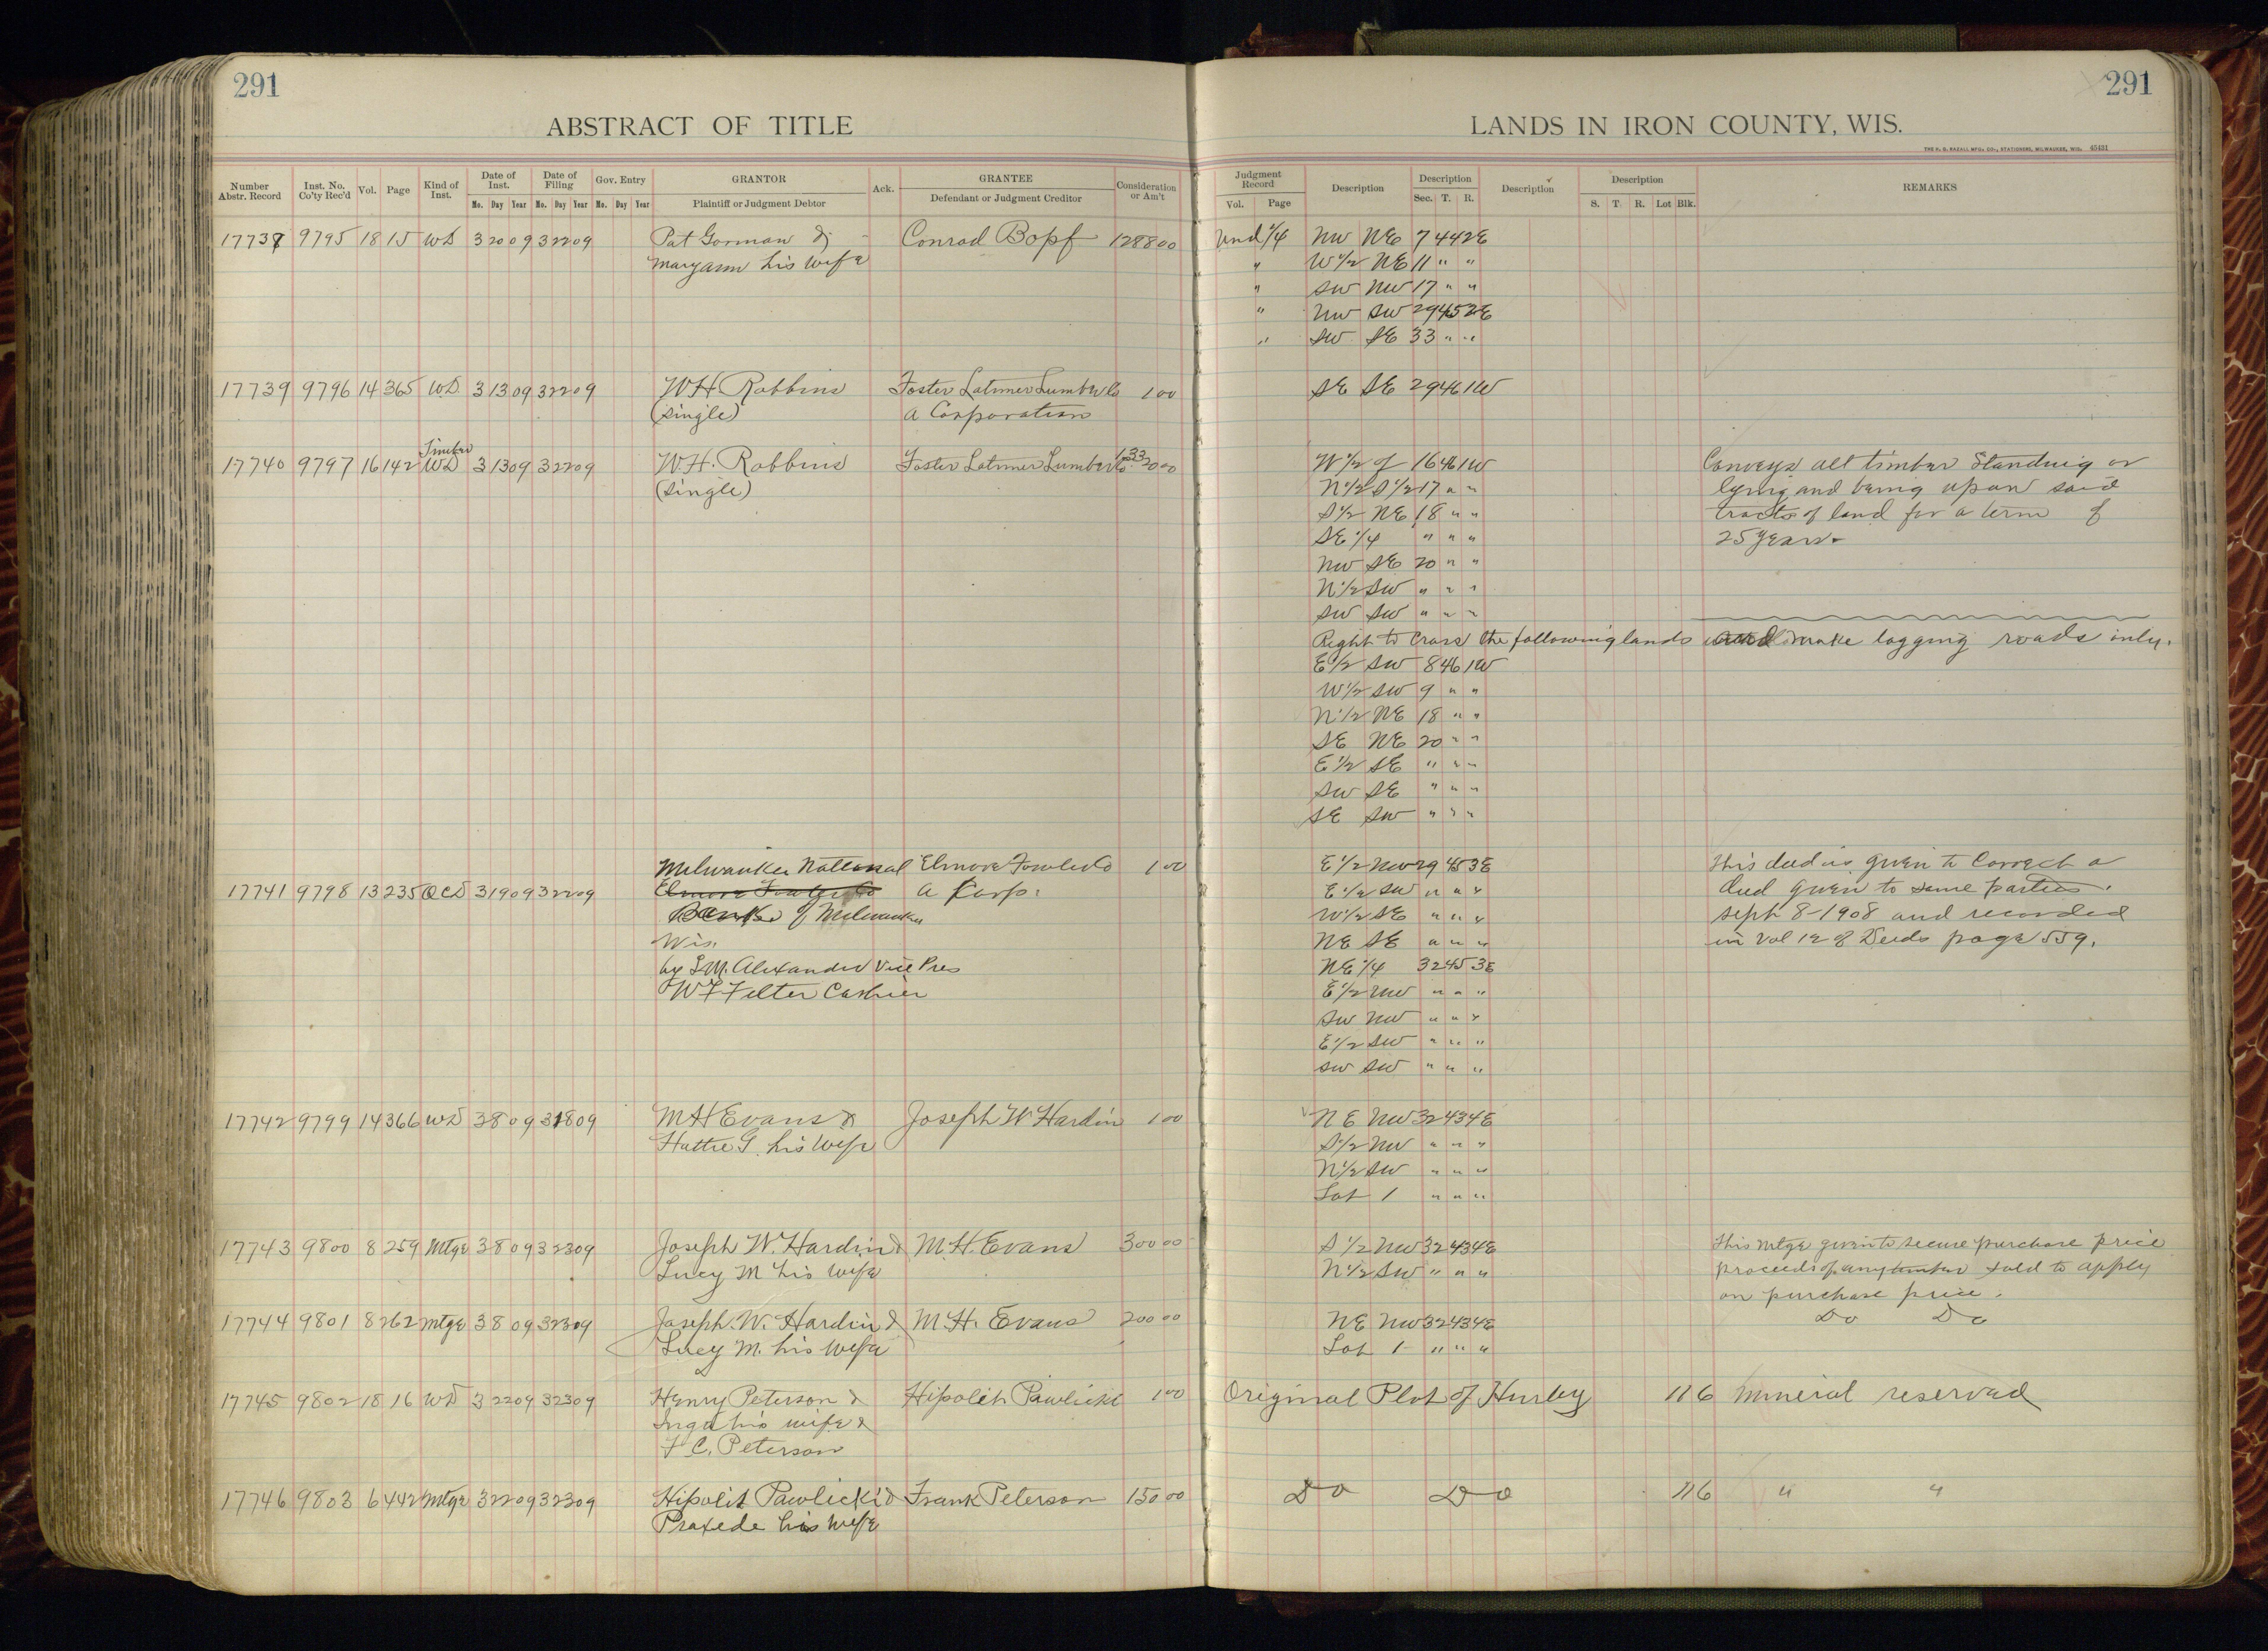 291
ABSTRACT OF TITLE
Number Abstr. Record | Inst. No. Co'ty Rec'd | Vol. | Page | Kind of Inst. | Date of Inst. Mo. Day Year | Date of Filing Mo. Day Year | Gov. Entry Mo. Day Year | GRANTOR Plaintiff or Judgment Debtor | Ack. | GRANTEE Defendant or Judgment Creditor | Consideration or Am't
9795 18 15 WD 3 20 09 3 22 09 Pat Gorman & Conrad Bopf 1288 00
Maryann his wife
17739 9796 14 365 WD 3 13 09 3 22 09 W H Robbins Foster Latimer Lumber Co 1 00
(single) a Corporation
Timber
17740 9797 16 142 WD 3 13 09 3 22 09 W. H. Robbins Foster Latimer Lumber Co
(single)
Milwaukee National Elmore Fowler Co 1 00
17741 9798 13 235 QCD 3 19 09 3 22 09 a Corp.
Bank of Milwaukee
Wis.
by L M. Alexander Vice Pres
W F Filter Cashier
17742 9799 14 366 WD 3 8 09 3 18 09 M H Evans & Joseph W Hardin 1 00
Hattie G. his wife
17743 9800 8 259 Mtge 3 8 09 3 23 09 Joseph W. Hardin & M. H. Evans 300 00
Lucy M his wife
17744 9801 8 262 Mtge 3 8 09 3 23 09 Joseph. W. Hardin & M. H. Evans 200 00
Lucy M. his wife
17745 9802 18 16 WD 3 22 09 3 23 09 Henry Peterson & Hipolit Pawlicki 1 00
Inga his wife &
F C. Peterson
17746 9803 6 442 Mtge 3 22 09 3 23 09 Hipolit Pawlicki & Frank Peterson 150 00
Praxede his wife
291
LANDS IN IRON COUNTY, WIS.
THE H. G. RAZALL MFG. CO., STATIONERS, MILWAUKEE, WIS. 45431
Judgment Record Vol. Page | Description | Description Sec. T. R. | Description | Description S. T. R. Lot Blk. | REMARKS
Und 1/4 NW NE 7 44 2E
" W1/2 NE 11 " "
" SW NW 17 " "
" NW SW 29 45 2E
" SW SE 33 " "
SE SE 29 46 1W
W1/2 of 16 46 1W Conveys all timber standing or
N1/2 S1/2 17 " " lying and being upon said
S1/2 NE 18 " " tracts of land for a term of
SE 1/4 " " " 25 years.
NW SE 20 " "
N1/2 SW " " "
SW SW " " "
Right to Cross the following lands and make logging roads only.
E1/2 SW 8 46 1W
W1/2 SW 9 " "
N1/2 NE 18 " "
SE NE 20 " "
E1/2 SE " " "
SW SE " " "
SE SW " " "
E1/2 NW 29 45 3E This deed is given to Correct a
E1/2 SW " " " deed given to same parties.
W1/2 SE " " " Sept 8-1908 and recorded
NE SE " " " in Vol 12 of Deeds page 559.
NE 1/4 32 45 3E
E1/2 NW " " "
SW NW " " "
E1/2 SW " " "
SW SW " " "
NE NW 32 43 4E
S1/2 NW " " "
N1/2 SW " " "
Lot 1 " " "
S1/2 NW 32 43 4E This Mtge given to secure purchase price
N1/2 SW " " " proceeds of any timber sold to apply
on purchase price.
NE NW 32 43 4E Do Do
Lot 1 " " "
Original Plat of Hurley 11 6 Mineral reserved
Do Do 11 6 " "